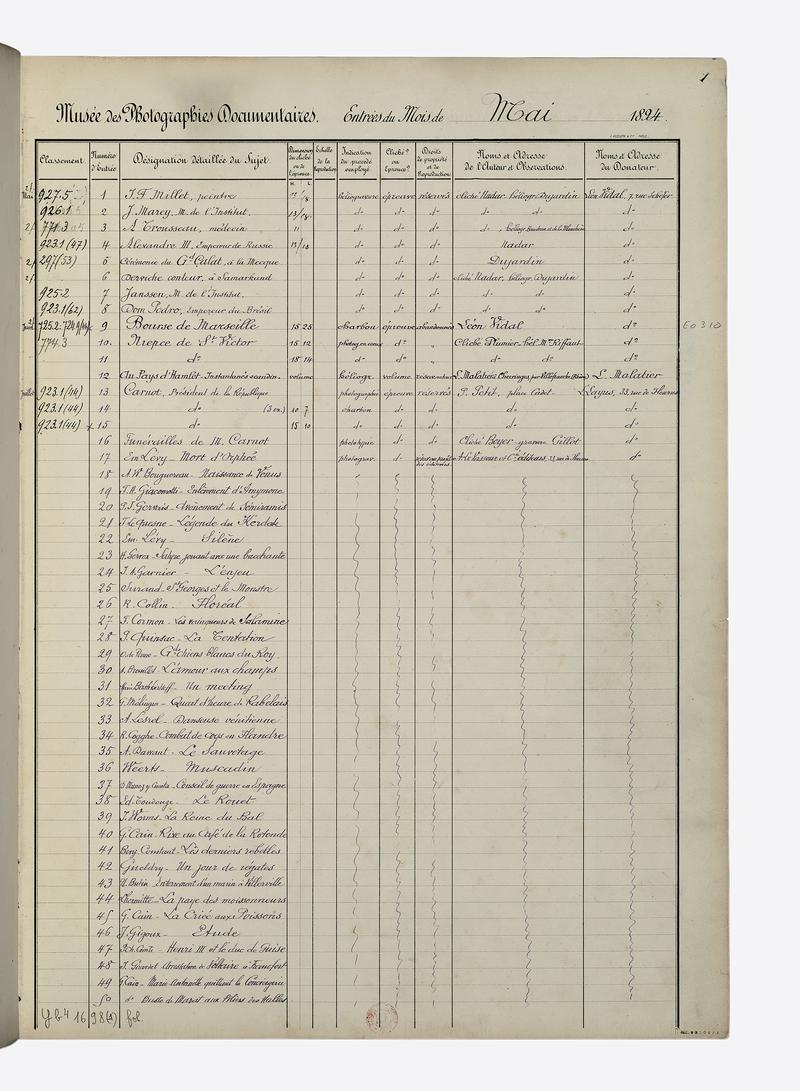 1
Musée des Photographies Documentaires. Entrées du Mois de Mai 1894.
Classement. Numéro d'Entrée Désignation détaillée du Sujet. Dimensions du cliché ou de l'épreuve. Echelle de la Reproduction Indication du procédé employé. Cliché? ou Epreuve? Droits de propriété et de Reproduction Noms et Adresse de l'Auteur et Observations. Noms et Adresse du Donateur.
H. L.
Mai 927.5 1 J. F. Millet, peintre héliogravure épreuve réservés cliché Nadar, héliogr. Dujardin Léon Vidal, 7, rue Scheffer
926.1 2 J. Marey, M. de l'Institut, 13/18 do do do do do do
771.3 3 A Trousseau, médecin " do do do do do
923.1 (47) 4 Alexandre III, Empereur de Russie 13/18 do do do Nadar do
297 (53) 5 Cérémonie du Gd Galat, à la Mecque do do do Dujardin do
6 Derviche conteur, à Samarkand do do do cliché Nadar, héliogr. Dujardin do
925.2 7 Janssen, M. de l'Institut, do do do do do do
923.1 (62) 8 Dom Pedro, Empereur du Brésil do do do do do do
Juin 725.2 9 Bourse de Marseille 15 25 charbon épreuve abandonnés Léon Vidal do
Eo 310
774.3 10. Niepce de St Victor 15 12 do " Cliché Plumier-hél. Mce Riffaut do
11 do 18 14 do do " do do do
12 Au Pays d'Hamlet- Instantanés scandin. volume héliogr. volume L. Malatier
Juillet 923.1 (44) 13 Carnot, Président de la République photographie épreuve réservés P. Petit, place Cadet 33, rue de Fleurus
923.1 (44) 14 do (3 ex.) 10 7 charbon do do do do
923.1 (44) x 15 do 15 10 do do do do do
16 Funérailles de M. Carnot phototypie do do Cliché Boyer - gravure Gillot do
17 Em Lévy - Mort d'Orphée photograv. do A. Le Vasseur et Cie éditeurs, 33, rue de Fleurus do
18 A. W. Bouguereau - Naissance de Vénus
19 Giacomotti - Enlèvement d'Amymone
20 Gervais - Avènement de Sémiramis
21 F. Le Quesne - Légende du Kerdek
22 Em. Lévy - Silène
23 H. Gervex - Satyre jouant avec une bacchante
24 J. A. Garnier - L'Enjeu
25 Surand - St Georges et le Monstre
26 R. Collin - Floréal
27 F. Cormon - Les vainqueurs de Salamine
28 P. Quinsac - La Tentation
29 O. de Penne - Gds Chiens blancs du Roy
30 A. Brouillet - L'amour aux champs
31 Marie Bashkirtseff - Un meeting
32 G. Mélingue - Quart d'heure de Rabelais
33 A. Lesrel - Danseuse vénitienne
34 R. Cogghe - Combat de coqs en Flandre
35 A. Davant - Le Sauvetage
36 Weerts - Muscadin
37 Conseil de guerre en Espagne
38 Ed. Toudouze - Le Rouet
39 J. Worms - La Reine du Bal
40 G. Cain - Rixe au Café de la Rotonde
41 Benj. Constant - Les derniers rebelles
42 Gueldry - Un jour de régates
43 U. Butin - Enterrement d'un marin à Villerville
44 Lhermitte - La paye des moissonneurs
45 G. Cain - La Criée aux Poissons
46 J. Gigoux - Etude
47 Comte - Henri III et le duc de Guise
48 Arrestation de Voltaire à Francfort
49 G. Cain - Marie Antoinette quittant la Conciergerie
50 do Buste de Marat aux Piliers des Halles
Yb4 1698 (1) fol.